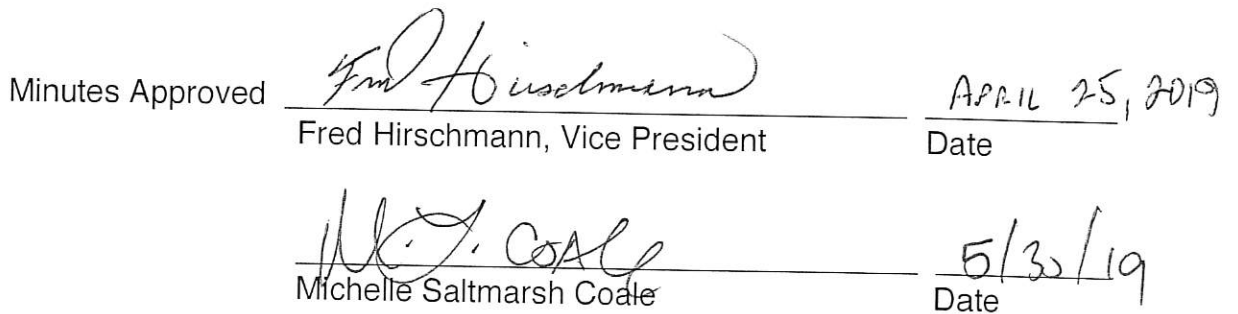 Minutes Approved Fred Hirschmann APRIL 25, 2019
Fred Hirschmann, Vice President Date
M.J. Coale 5/30/19
Michelle Saltmarsh Coale Date